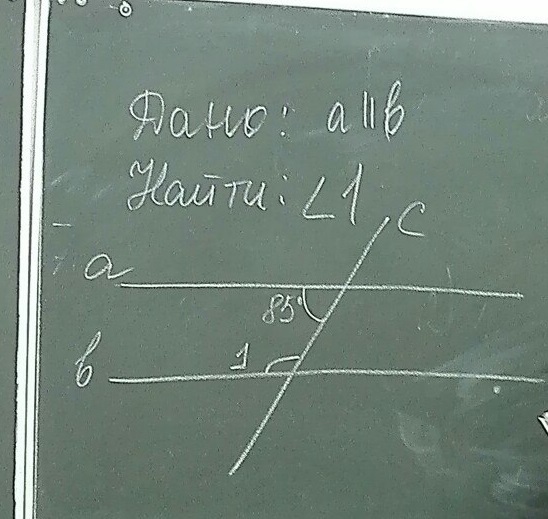 Дано: a || b
Найти: ∠1
c
a
85°
1
b